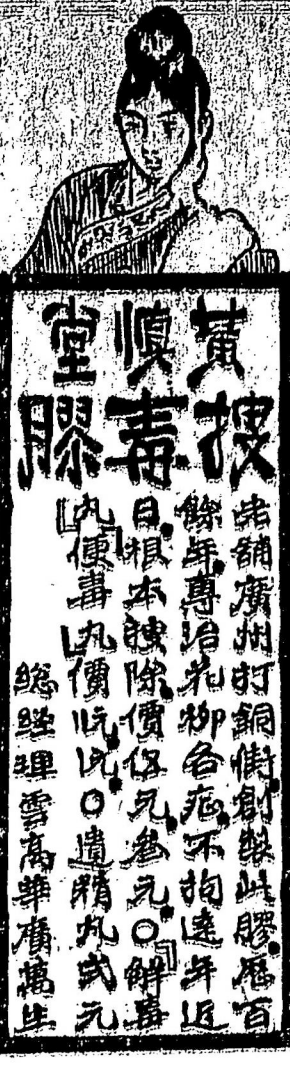 黃慎堂
搜毒膠
老舖廣州打銅街創製此膠歷百
餘年專治花柳各症不拘遠年近
日根本搜除價伍元叁元○「解毒
丸」「便毒丸」價○遺精丸弍元
總經理雪高華廣萬生